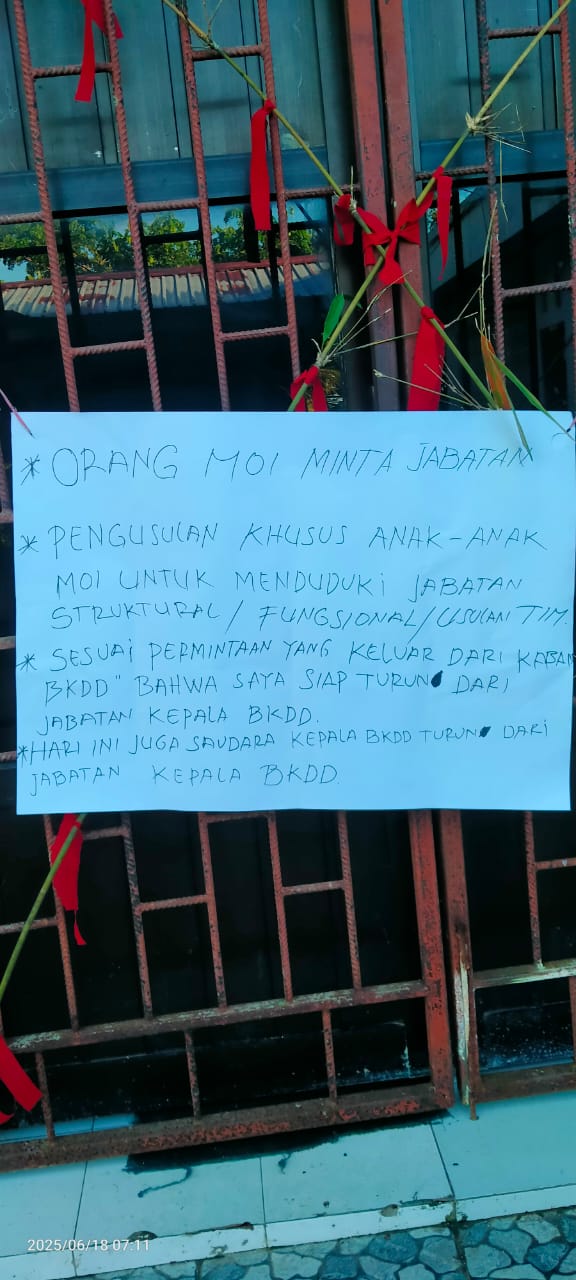 * ORANG MOI MINTA JABATAN
* PENGUSULAN KHUSUS ANAK-ANAK
MOI UNTUK MENDUDUKI JABATAN
STRUKTURAL/FUNGSIONAL/USULAN TIM.
* SESUAI PERMINTAAN YANG KELUAR DARI KABAN
BKDD" BAHWA SAYA SIAP TURUN DARI
JABATAN KEPALA BKDD.
*HARI INI JUGA SAUDARA KEPALA BKDD TURUN DARI
JABATAN KEPALA BKDD.
2025/06/18 07:11